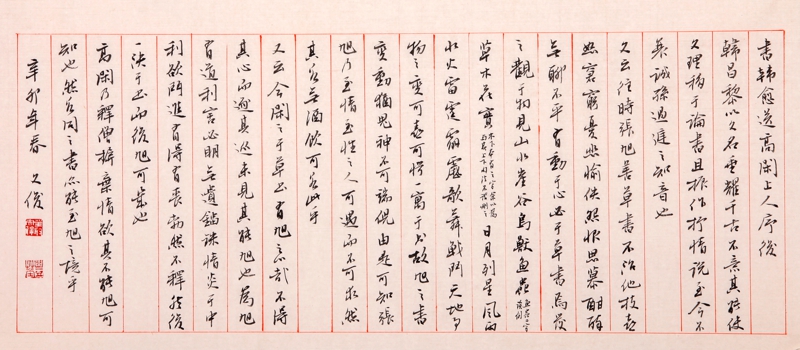 書韓愈送高閑上人序後
韓昌黎以文名重耀千古不意其能使
文理移于論書且振作抒情說至今不
誠孫過庭之知音也
又云往時張旭善草書不治他技喜
怒窘窮憂悲愉佚怨恨思慕酣醉
無聊不平有動于心必于草書焉發
之觀于物見山水崖谷鳥獸魚蟲
草木花實 日月列星風雨
水火雷霆霹靂歌舞戰鬥天地事
物之變可喜可愕一寓于書故旭之書
變動猶鬼神不可端倪由是可知張
旭乃至情至性之人可遇而不可求然
其無酒飲可此乎
又云今閑之于草書有旭之心哉不得
其心而逐其跡未見其能旭也為旭
有道利害必明無遺錙銖情炎于中
利欲鬥進有得有喪勃然不釋然後
一決于書而後旭可幾也
高閑乃釋僧摒棄情欲其不能旭可
知也然之書亦能至旭之境乎
辛卯年春 文俊